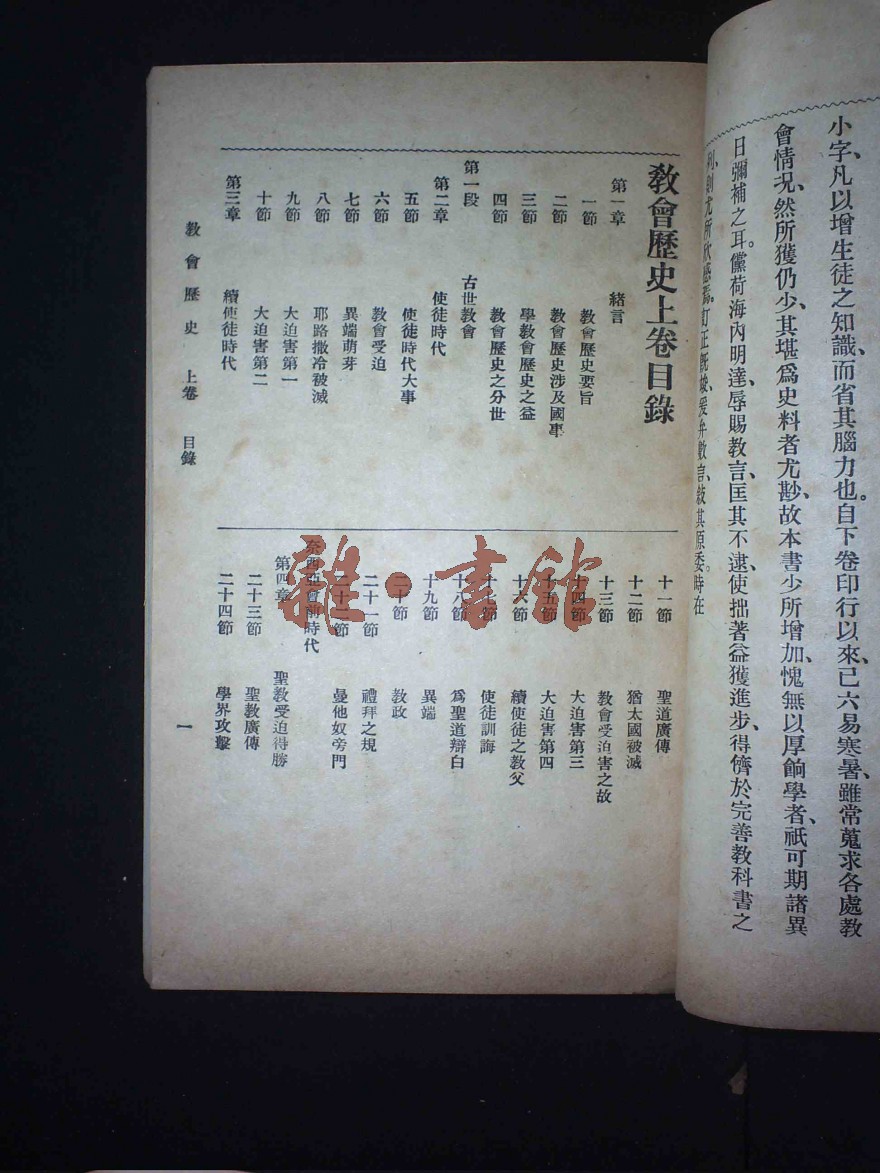 小字、凡以增生徒之知識、而省其腦力也。自下卷印行以來、已六易寒暑、雖常蒐求各處教
會情况、然所獲仍少、其堪爲史料者尤尠、故本書少所增加、愧無以厚餉學者、祇可期諸異
日彌補之耳。儻荷海內明達、辱賜教言、匡其不逮、使拙著益獲進步、得儕於完善教科書之
列、則尤所欣感焉。訂正既竣、爰弁數言、敍其原委。時在
教會歷史上卷目錄
第一章 緒言
一節 教會歷史要旨
二節 教會歷史涉及國事
三節 學教會歷史之益
四節 教會歷史之分世
第一段 古世教會
第二章 使徒時代
五節 使徒時代大事
六節 教會受迫
七節 異端萌芽
八節 耶路撒冷被滅
九節 大迫害第一
十節 大迫害第二
第三章 續使徒時代
十一節 聖道廣傳
十二節 猶太國被滅
十三節 教會受迫害之故
十四節 大迫害第三
十五節 大迫害第四
十六節 續使徒之教父
十七節 使徒訓誨
十八節 爲聖道辯白
十九節 異端
二十節 教政
二十一節 禮拜之規
二十二節 曼他奴旁門
奈西亞會前時代
第四章 聖教受迫得勝
二十三節 聖教廣傳
二十四節 學界攻擊
教會歷史 上卷 目錄
一
雜·書館